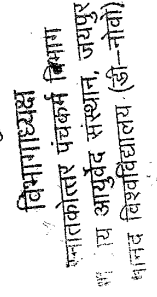 विभागाध्यक्ष
स्नातकोत्तर पंचकर्म विभाग
य आयुर्वेद संस्थान, जयपुर
मानद विश्वविद्यालय (डी-नोवो)